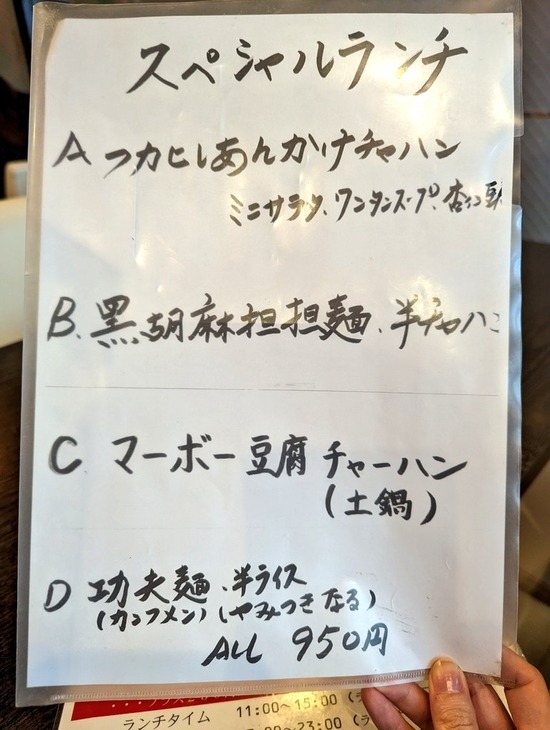 スペシャルランチ
A フカヒレあんかけチャハン
ミニサラダ、ワンタンスープ、杏仁豆
B、黒胡麻担担麺、半チャハン
C マーボー豆腐 チャーハン
(土鍋)
D 功夫麺、半ライス
(カンフメン) (やみつきなる)
ALL 950円
ランチタイム 11:00~15:00 (ラ
~23:00 (ラ